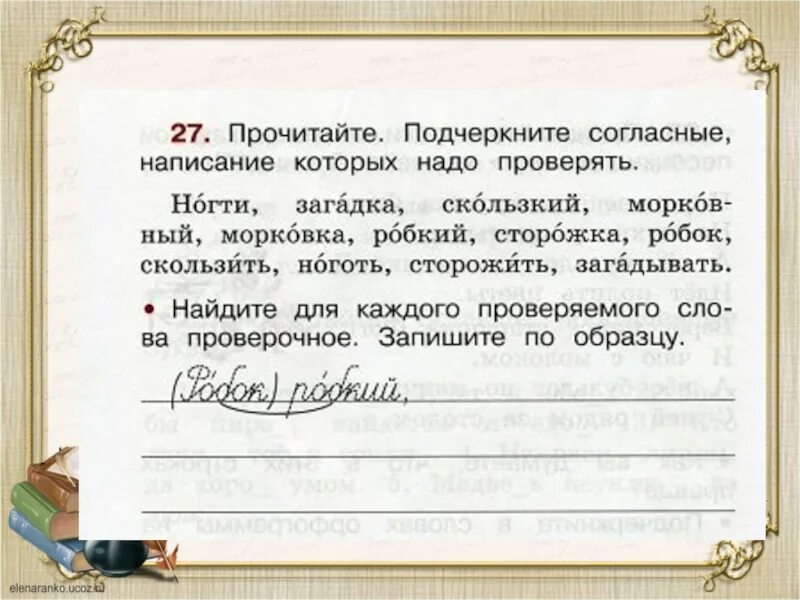 27. Прочитайте. Подчеркните согласные,
написание которых надо проверять.
Но́гти, зага́дка, ско́льзкий, морко́в-
ный, морко́вка, ро́бкий, сторо́жка, ро́бок,
скользи́ть, но́готь, сторожи́ть, зага́дывать.
• Найдите для каждого проверяемого сло-
ва проверочное. Запишите по образцу.
(Ро́бок) ро́бкий,
elenaranko.ucoz.ru